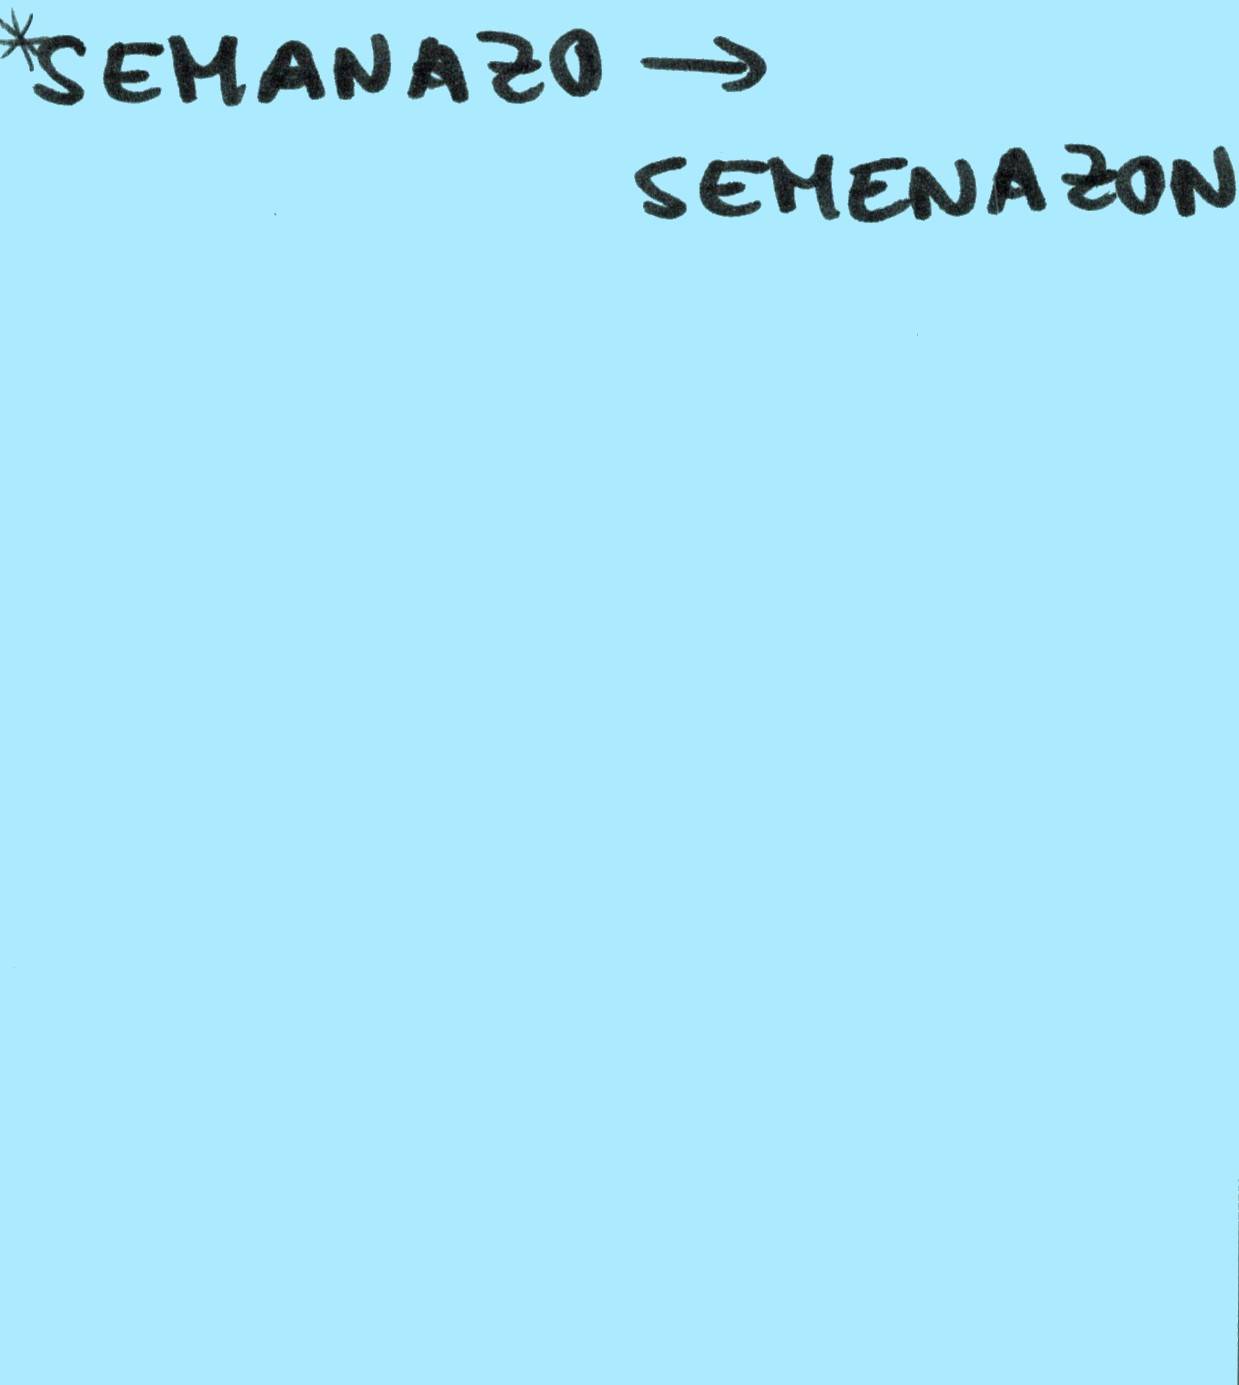 *SEMANAZO →
SEMENAZON